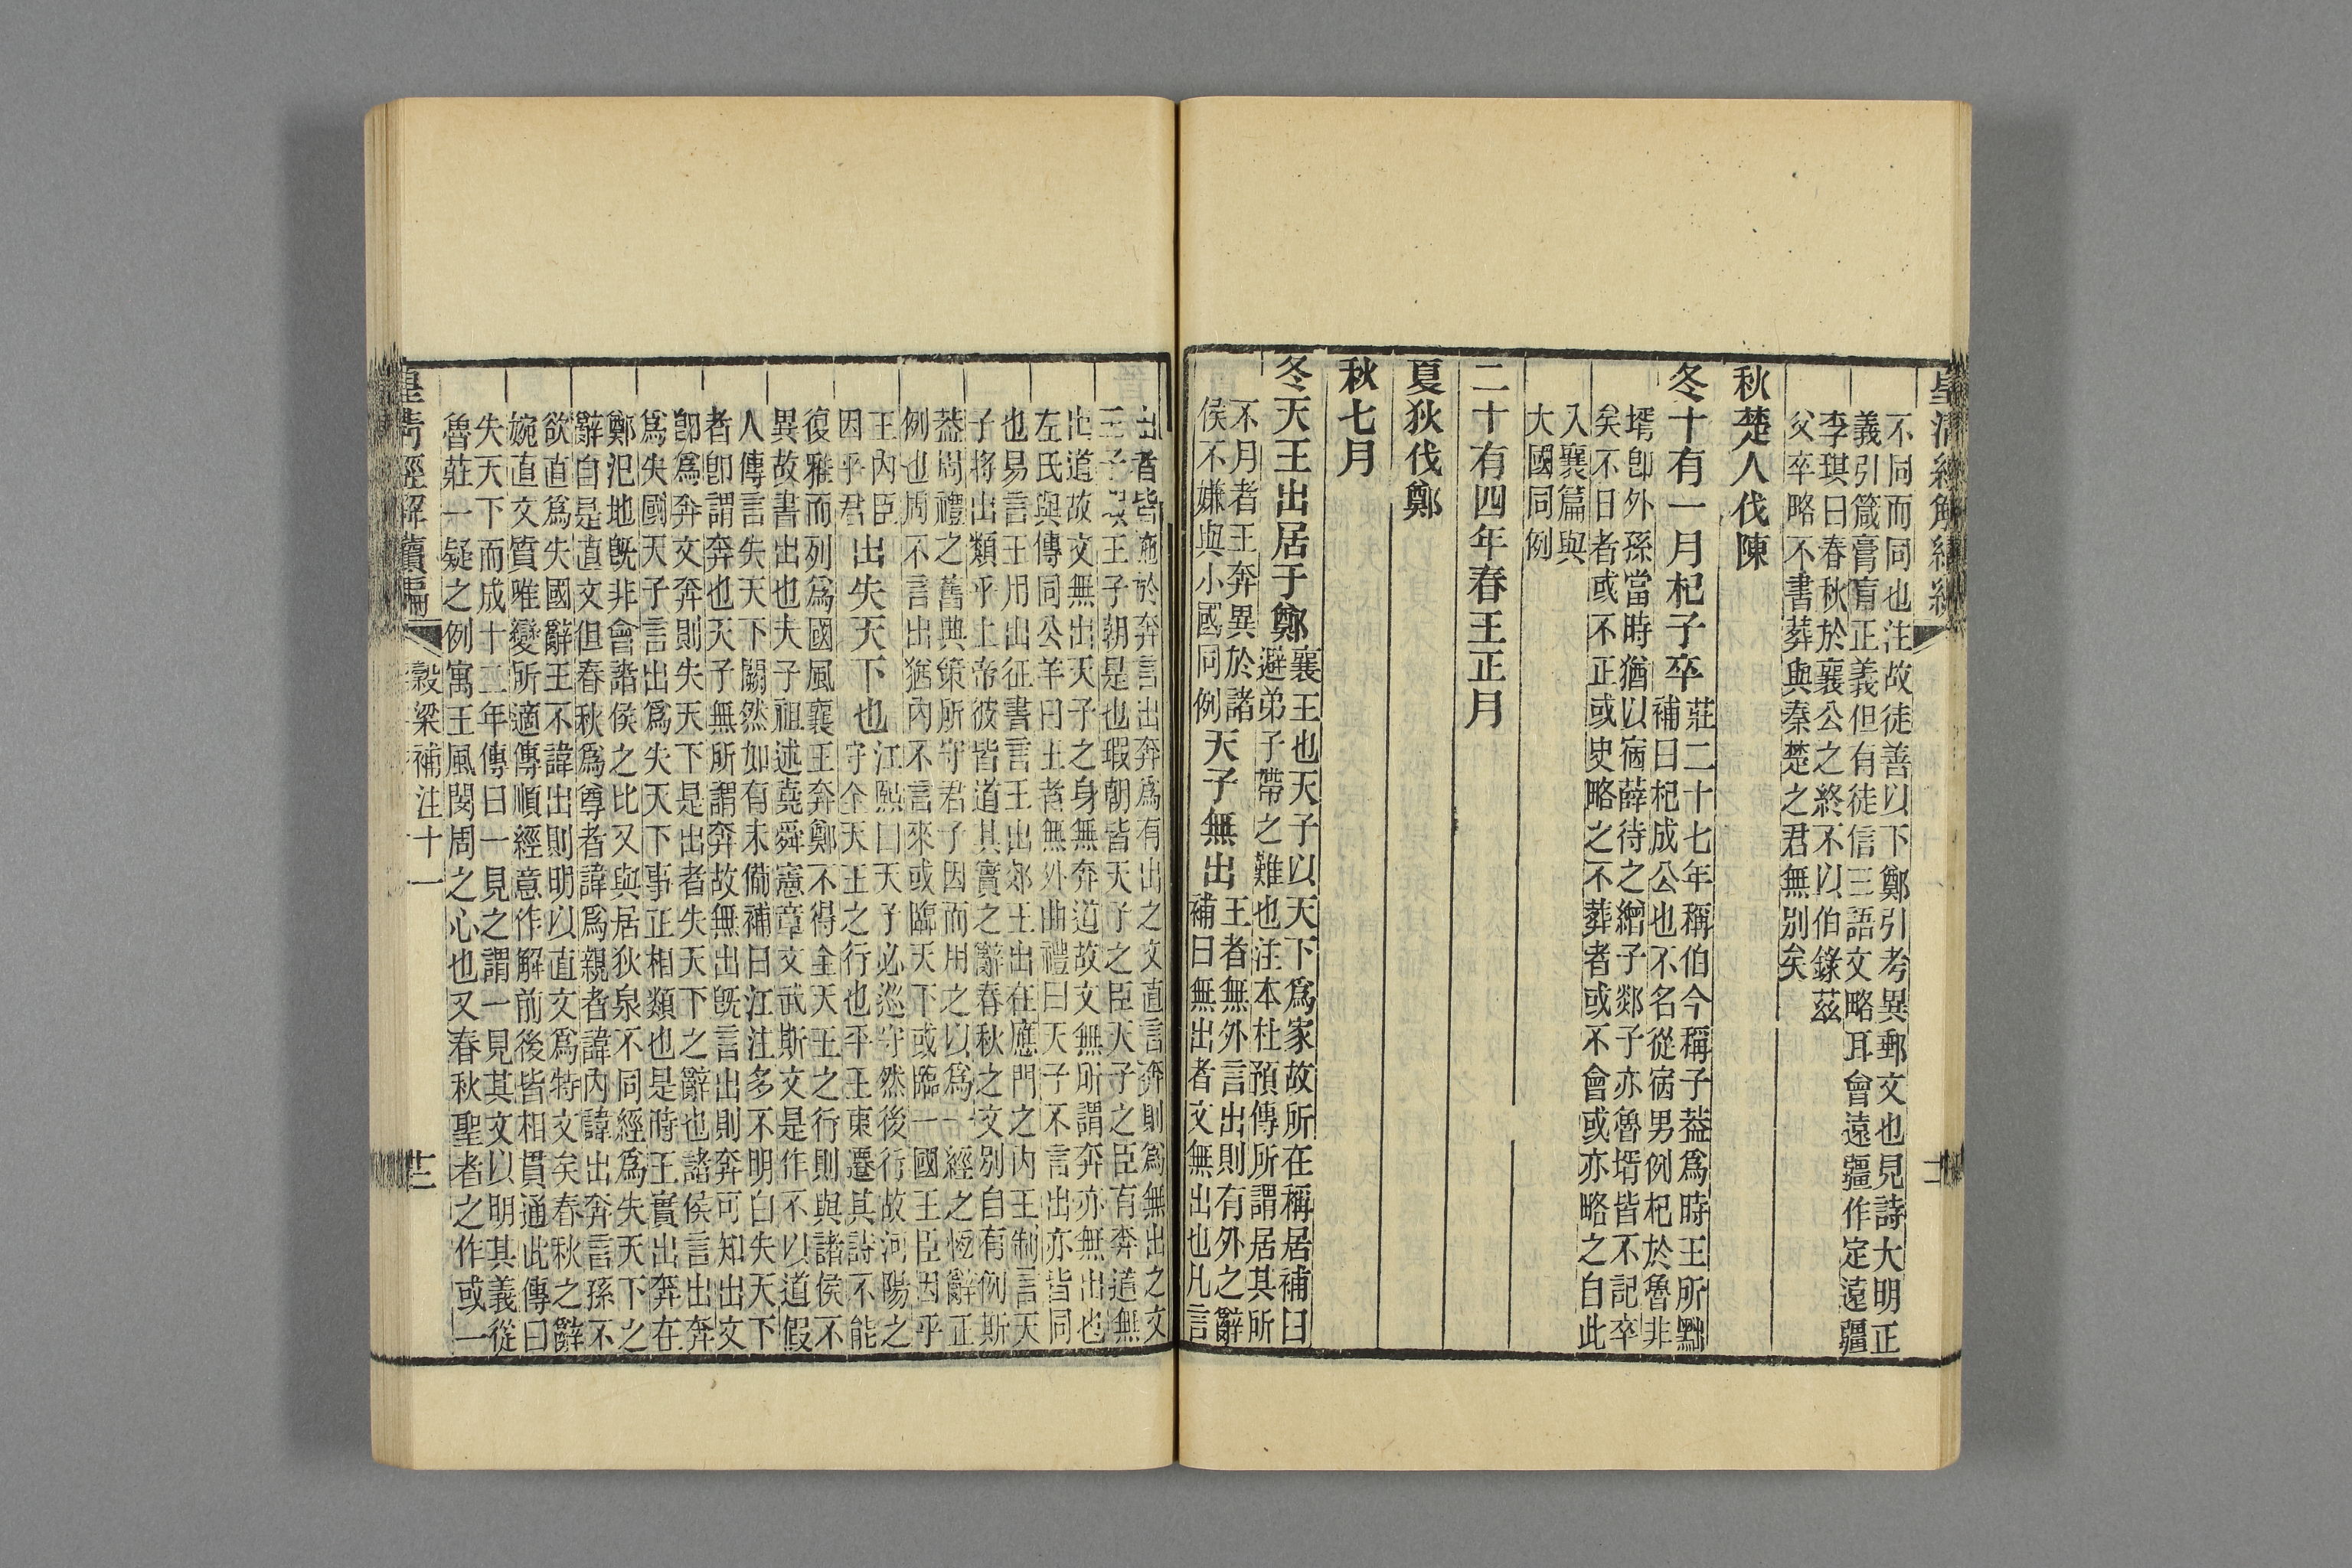 不同而同也注故徒善以下鄭引考異郵文也見詩大明正
義引箴膏肓正義但有徒信三語文略耳曾遠疆作定遠疆
李琪曰春秋於襄公之終不以伯錄茲
父卒略不書葬與秦楚之君無別矣
秋楚人伐陳
冬十有一月杞子卒
莊二十七年稱伯今稱子葢爲時王所黜
補曰杞成公也不名從宿男例杞於魯非
壻卽外孫當時猶以宿薛待之繒子郯子亦魯壻皆不記卒
矣不日者或不正或史略之不葬者或不會或亦略之自此
入襄篇與
大國同例
二十有四年春王正月
夏狄伐鄭
秋七月
冬天王出居于鄭
襄王也天子以天下爲家故所在稱居補曰
避弟子帶之難也注本杜預傳所謂居其所
不月者王奔異於諸
侯不嫌與小國同例
天子無出
王者無外言出則有外之辭
補曰無出者文無出也凡言
出者皆施於奔言出奔爲有出之文直言奔則爲無出之文
王子瑕王子朝是也瑕朝皆天子之臣天子之臣有奔道無
出道故文無出天子之身無奔道故文無所謂奔亦無出也
左氏與傳同公羊曰王者無外曲禮曰天子不言出亦皆同
也易言王用出征書言王出郊王出在應門之內王制言天
子將出類乎上帝彼皆道其實之辭春秋之文別自有例斯
葢周禮之舊典策所守君子因而用之以爲一經之恆辭正
例也周不言出猶內不言來或臨天下或臨一國王臣因乎
王內臣
因乎君
出失天下也
江熙曰天子必巡守然後行故河陽之
守全天王之行也平王東遷其詩不能
復雅而列爲國風襄王奔鄭不得全天王之行則與諸侯不
異故書出也夫子祖述堯舜憲章文武斯文是作不以道假
人傳言失天下闕然如有未備補曰江注多不明白失天下
者卽謂奔也天子無所謂奔故無出旣言出則奔可知出文
卽爲奔文奔則失天下是出者失天下之辭也諸侯言出奔
爲失國天子言出爲失天下事正相類也是時王實出奔在
鄭汜地旣非會諸侯之比又與居狄泉不同經爲失天下之
辭自是直文但春秋爲尊者諱爲親者諱內諱出奔言孫不
欲直爲失國辭王不諱出則明以直文爲特文矣春秋之辭
婉直文質唯變所適傳順經意作解前後皆相貫通此傳曰
失天下而成十二年傳曰一見之謂一見其文以明其義從
魯莊一疑之例寓王風閔周之心也又春秋聖者之作或一
皇清經解續編
穀梁補注十一